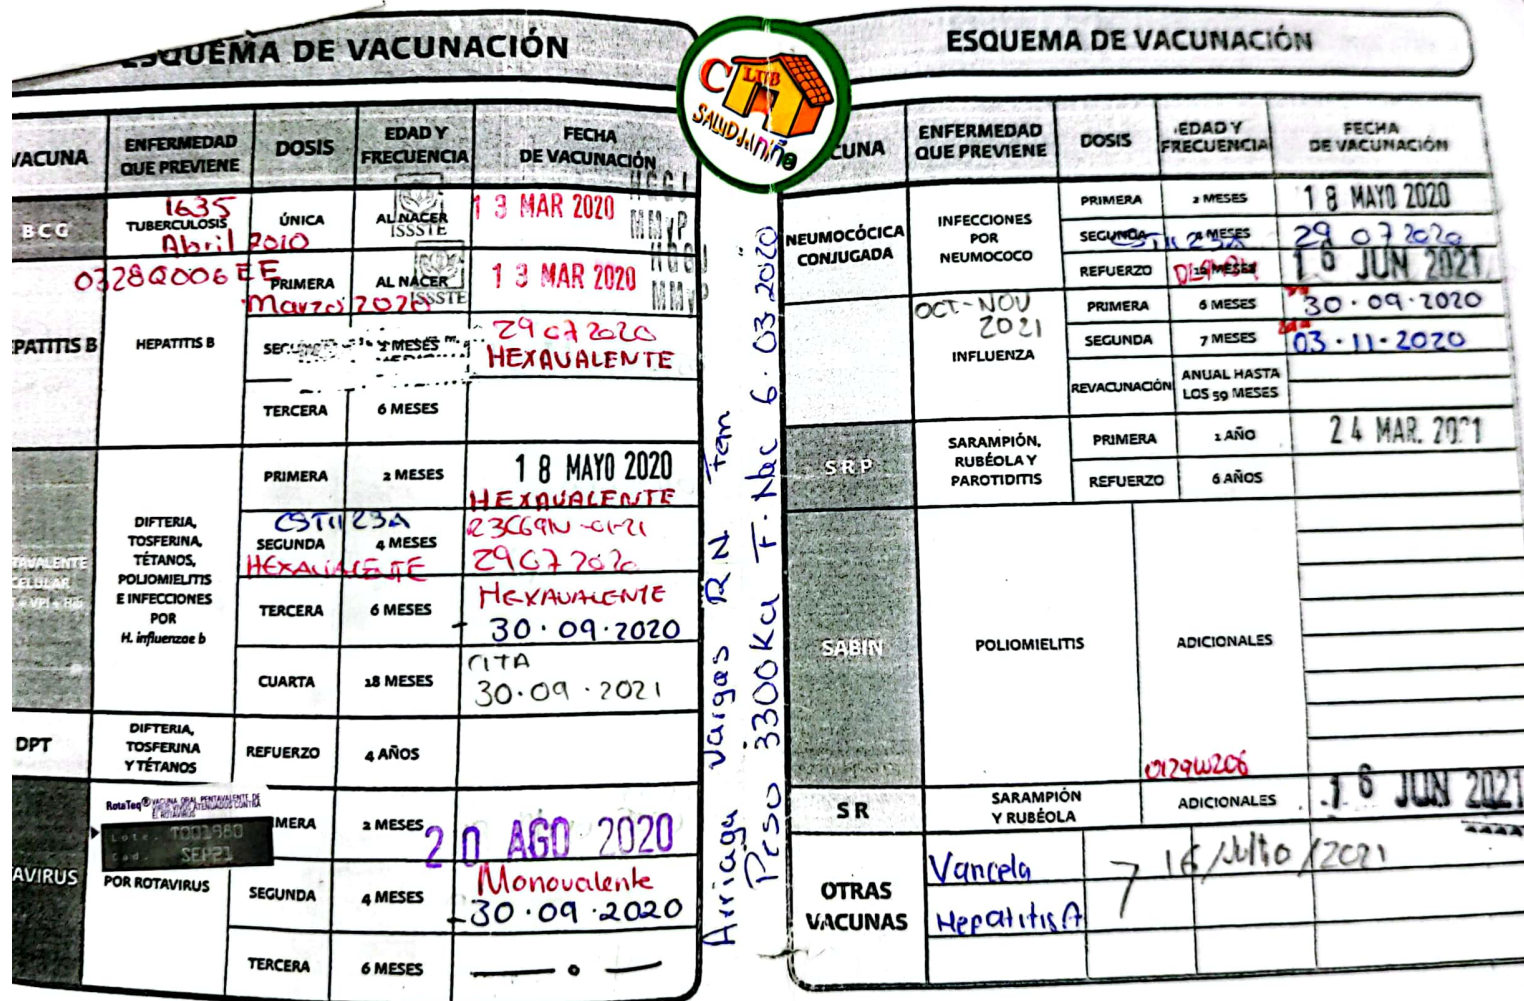 ESQUEMA DE VACUNACIÓN
VACUNA
ENFERMEDAD QUE PREVIENE
DOSIS
EDAD Y FRECUENCIA
FECHA DE VACUNACIÓN
BCG
1635
TUBERCULOSIS
Abril 2010
ÚNICA
AL NACER
ISSSTE
13 MAR 2020
PATITIS B
0328Q006EE
HEPATITIS B
PRIMERA
AL NACER
Marzo 2020
ISSSTE
13 MAR 2020
2 MESES
29 07 2020
HEXAVALENTE
TERCERA
6 MESES
DIFTERIA,
TOSFERINA,
TÉTANOS,
POLIOMIELITIS
E INFECCIONES
POR
H. influenzae b
PRIMERA
2 MESES
18 MAYO 2020
HEXAVALENTE
CSTI123A
SEGUNDA
4 MESES
HEXAVALENTE
23C69N -01-21
29 07 2020
TERCERA
6 MESES
HEXAVALENTE
- 30·09·2020
CUARTA
18 MESES
CITA
30·09·2021
DPT
DIFTERIA,
TOSFERINA
Y TÉTANOS
REFUERZO
4 AÑOS
AVIRUS
RotaTeq® VACUNA ORAL PENTAVALENTE DE
VIRUS VIVOS ATENUADOS CONTRA
EL ROTAVIRUS
Lote. T001980
Cad. SEP21
POR ROTAVIRUS
MERA
2 MESES
20 AGO 2020
SEGUNDA
4 MESES
Monovalente
-30·09·2020
TERCERA
6 MESES
Arriaga Vargas R.N. Fem
Peso 3300Kg F. Nac 6. 03. 2020
CLUB
SALUD
niño
ESQUEMA DE VACUNACIÓN
CUNA
ENFERMEDAD QUE PREVIENE
DOSIS
EDAD Y FRECUENCIA
FECHA DE VACUNACIÓN
NEUMOCÓCICA
CONJUGADA
INFECCIONES
POR
NEUMOCOCO
PRIMERA
2 MESES
18 MAYO 2020
SEGUNDA
4 MESES
CSTI123A
29 07 2020
REFUERZO
16 JUN 2021
OCT-NOV
2021
INFLUENZA
PRIMERA
6 MESES
30·09·2020
SEGUNDA
7 MESES
03·11·2020
REVACUNACIÓN
ANUAL HASTA
LOS 59 MESES
SRP
SARAMPIÓN,
RUBÉOLA Y
PAROTIDITIS
PRIMERA
1 AÑO
24 MAR. 2021
REFUERZO
6 AÑOS
SABIN
POLIOMIELITIS
ADICIONALES
0129W206
SR
SARAMPIÓN
Y RUBÉOLA
ADICIONALES
16 JUN 2021
OTRAS
VACUNAS
Varicela
Hepatitis A
16/Julio/2021